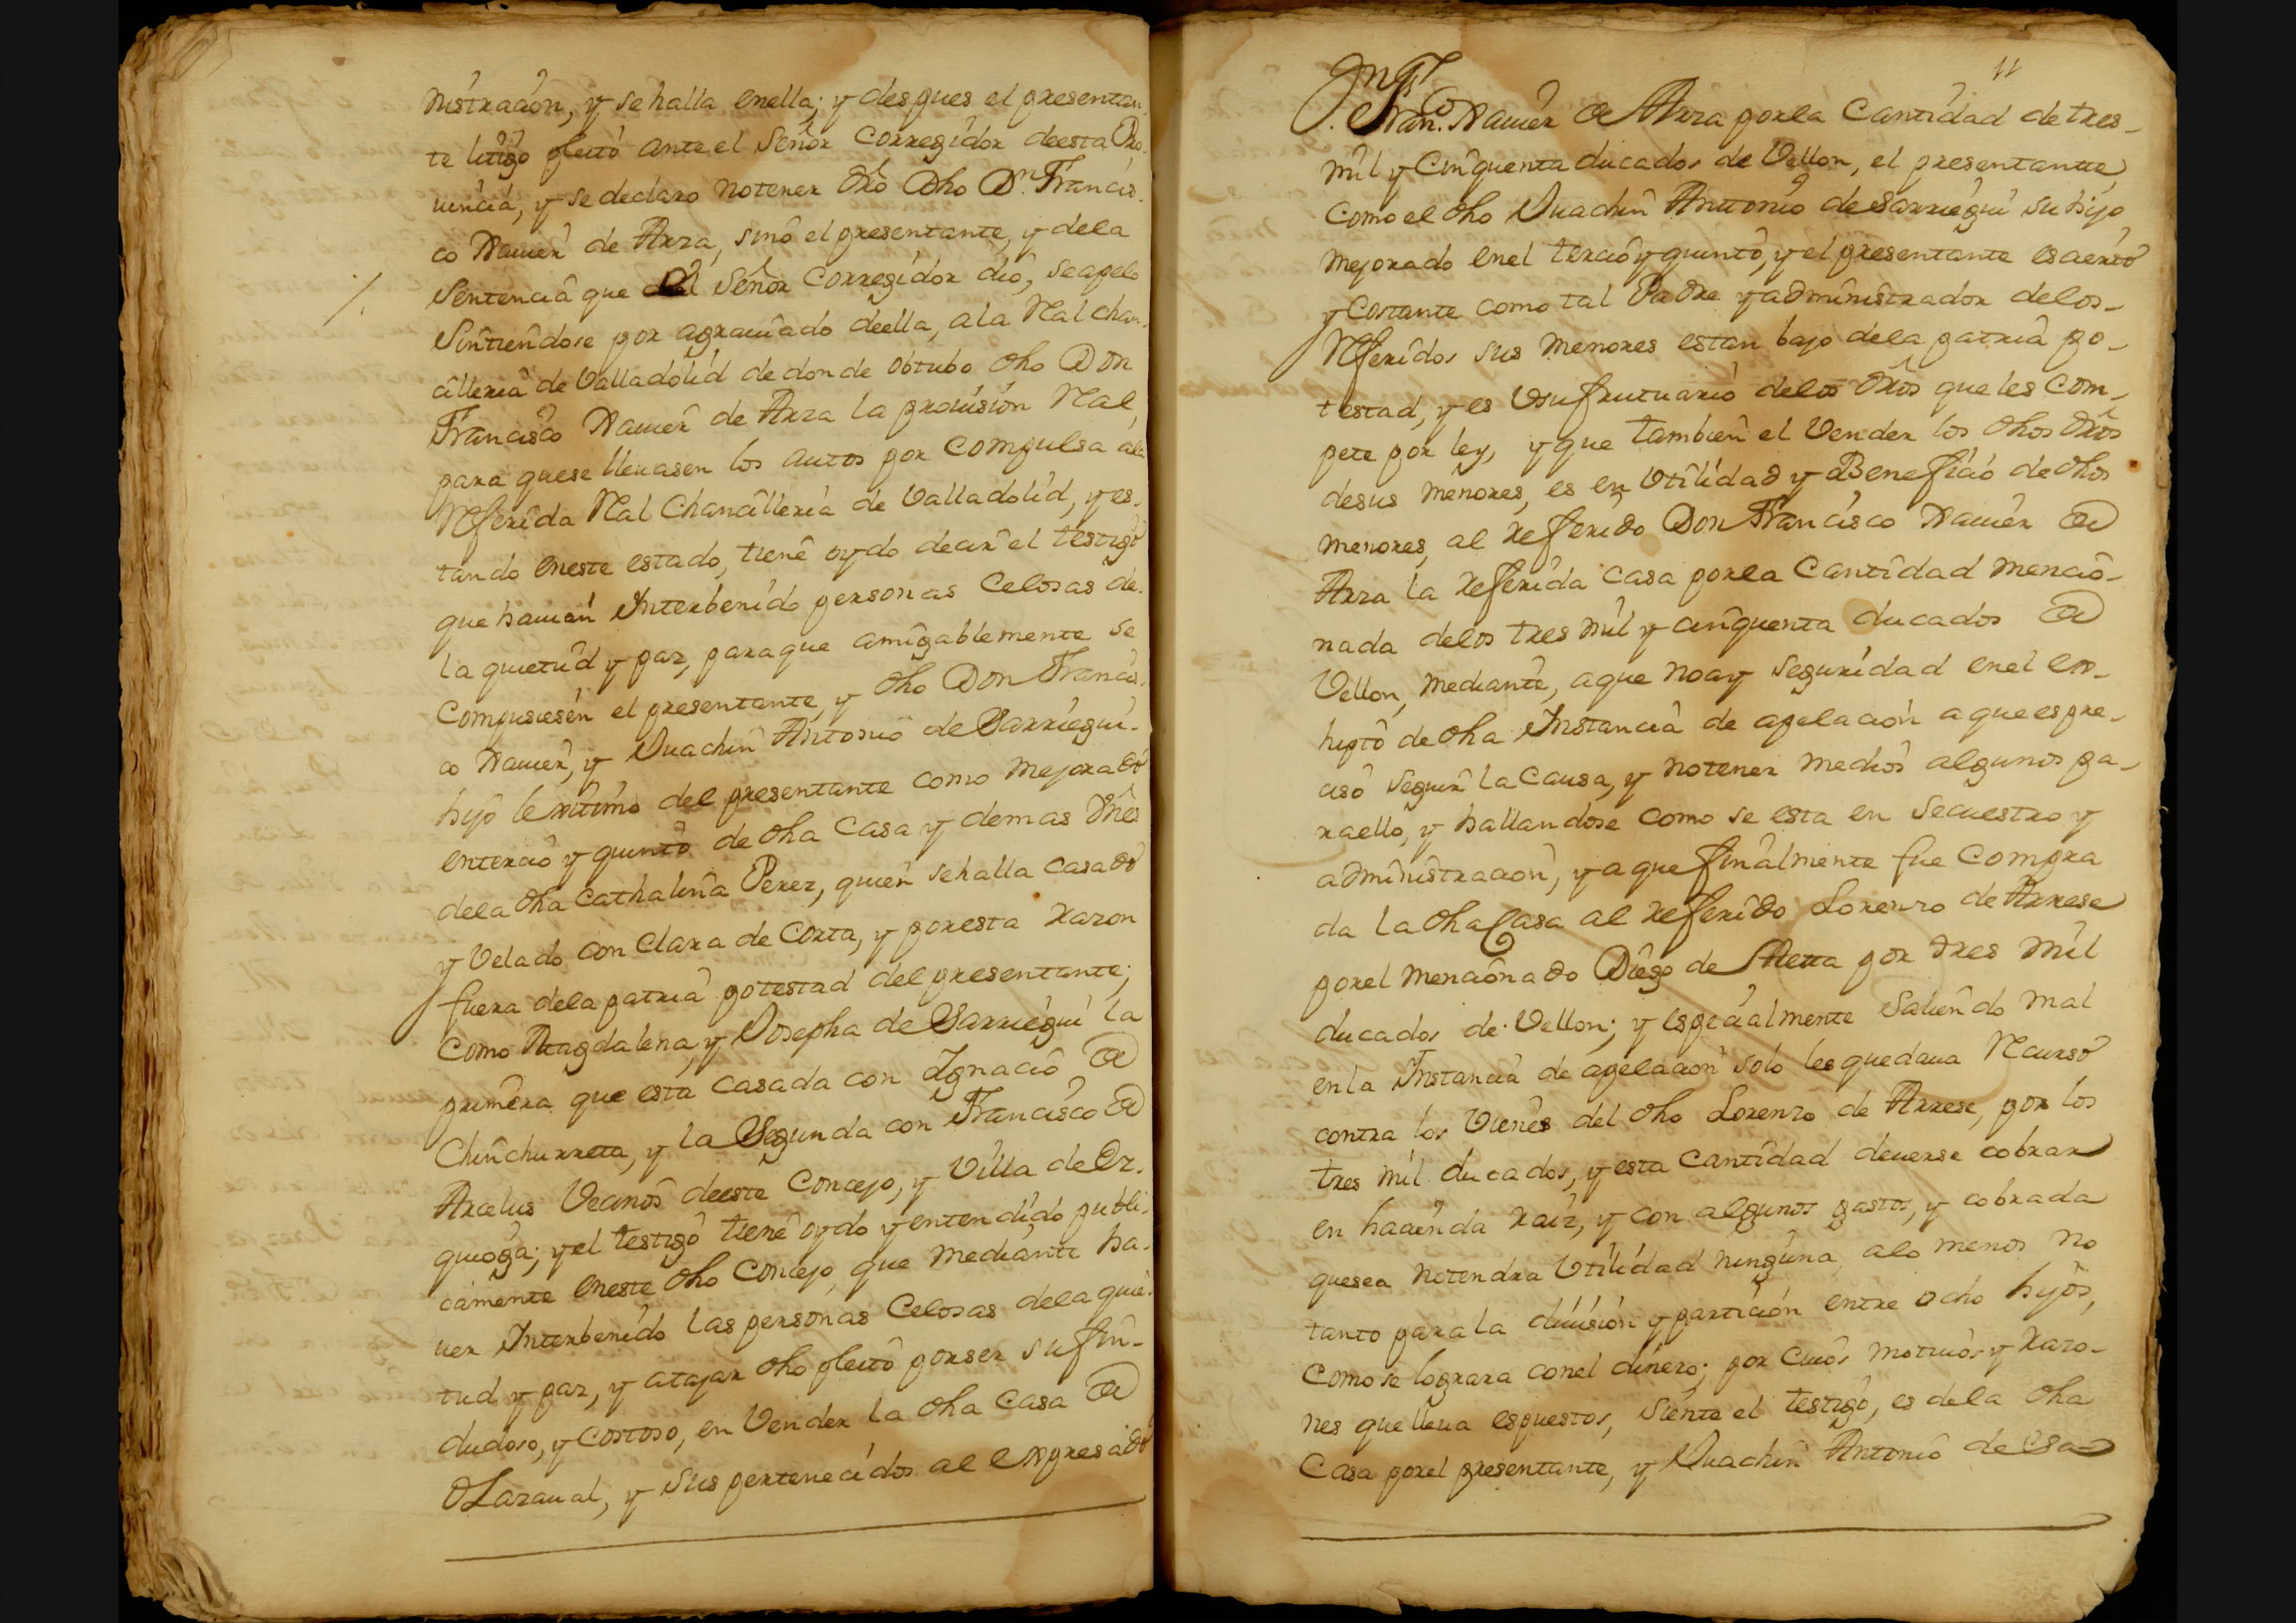 nistracion, y se halla enella; y despues el presentan-
te litigo pleito ante el Señor Corregidor deesta Pro-
uincia, y se declaro notener dro Dho Dn. Francis-
co Xauier de Arza, sino el presentante, y dela
Sentencia que el Señor Corregidor dio, seapelo
Sintiendose por agrauiado deella, ala Real chan-
cilleria de Valladolid de donde obtubo dho Don
Francisco Xauier de Arza la prouision Real,
para quese lleuasen los autos por Compulsa ala
Referida Real Chancilleria de Valladolid, y es-
tando eneste estado, tiene oydo decir el testigo
que hauian Interbenido personas Celosas de
la quietud y paz, paraque amigablemente se
Compusiesen el presentante, y dho Don Francis-
co Xauier, y Juachin Antonio de Sarriegui
hijo lexitimo del presentante como mejorado
entercio y quinto de dha Casa y demas vnes
dela dha Cathalina Perez, quien sehalla casado
y Velado con Clara de Corta, y poresta razon
fuera dela patria potestad del presentante;
Como Magdalena, y Josepha de Sarriegui la
primera que esta casada con Ignacio de
Chinchurreta, y la Segunda con Francisco de
Arcelus Vecinos deeste Concejo, y Villa de Or-
quioga; y el testigo tiene oydo y entendido publi-
camente eneste dho Concejo, que mediante ha-
uer Interbenido las personas Celosas dela quie-
tud y paz, y atajar dho pleito porser su fin
dudoso, y Costoso, en Vender la dha Casa de
Olazaual, y sus pertenecidos al expresado
11
Dn. Franco. Xauier de Arza porla Cantidad de tres
mil y Cinquenta ducados de Vellon, el presentante,
Como el dho Juachin Antonio de Sarriegui su hijo
mejorado enel tercio y quinto, y el presentante es cierto
y Constante como tal Padre y administrador delos
Referidos sus menores estan bajo dela patria po-
testad, y es Vsufrutuario delos dros que les Com-
pete por ley, y que tambien el Vender los dhos dros
desus menores, es en Vtilidad y Beneficio de dhos
menores, al referido Don Francisco Xauier de
Arza la referida casa porla Cantidad mencio-
nada delos tres mil y cinquenta ducados de
Vellon, mediante, aque noay seguridad enel ex-
hipto de dha Instancia de apelacion a que es pre-
ciso seguir la Causa, y notener medios algunos pa-
raello, y hallandose como se esta en secuestro y
administracion, y aque finalmente fue Compra
da la dha Casa al referido Lorenzo de Arrese
porel mencionado Diego de Aleta por tres mil
ducados de Vellon; y especialmente saliendo mal
enla Instancia de apelacion solo les quedaua Recurso
contra los Vienes del dho Lorenzo de Arrese, por los
tres mil ducados, y esta Cantidad deuerse cobrar
en hacienda raiz, y con algunos gastos, y cobrada
quesea notendra Vtilidad ninguna alo menos no
tanto parala diuision y particion entre ocho hijos,
Como se lograra conel dinero; por cuios motiuos y razo-
nes que lleua espuestos, siente el testigo, es dela dha
Casa porel presentante, y Juachin Antonio de Sa